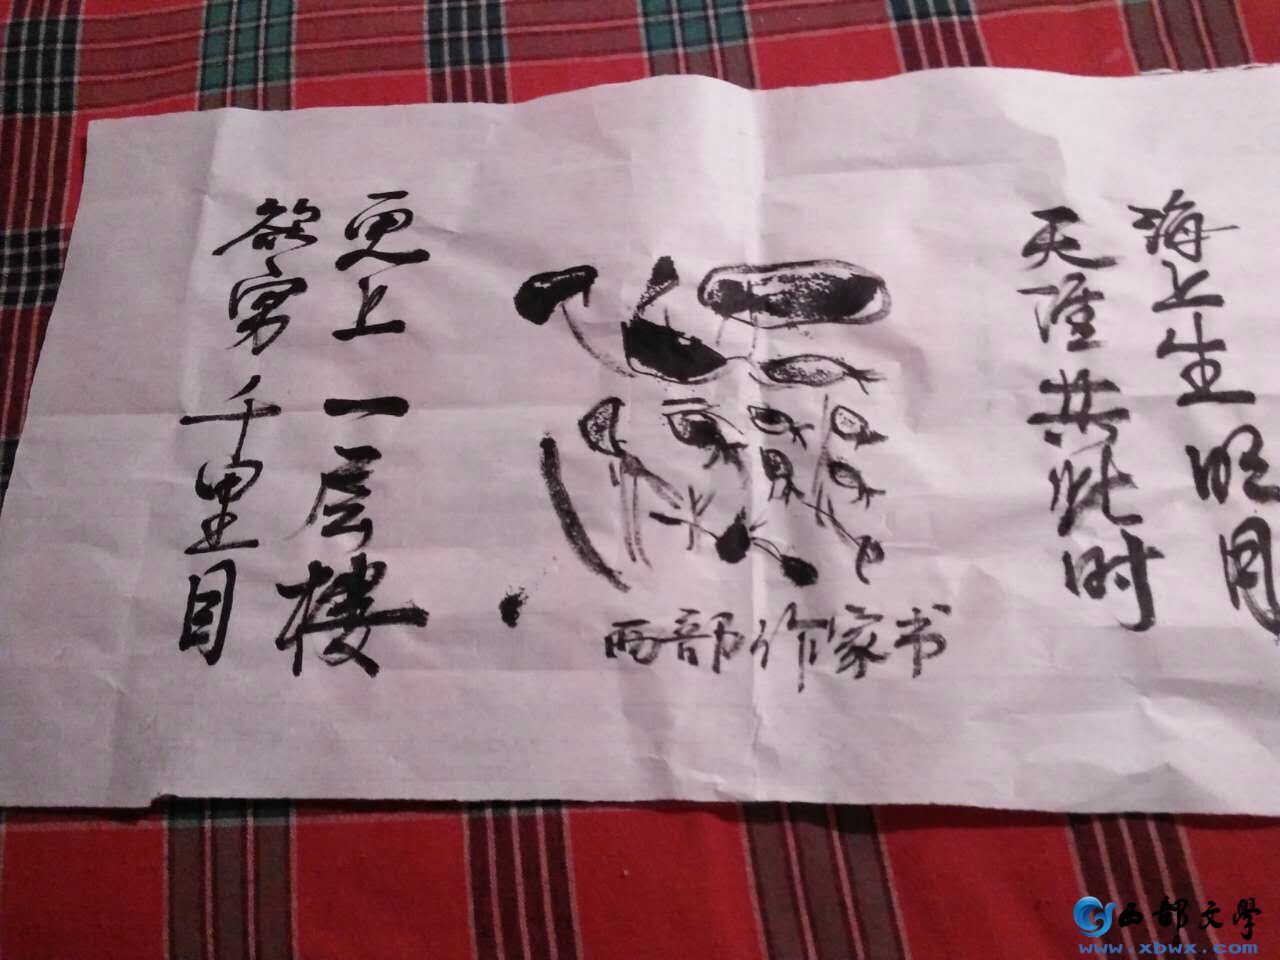 海上生明月
天涯共此时
西部作家书
更上一层楼
欲穷千里目
西部文學
www.xbwx.com